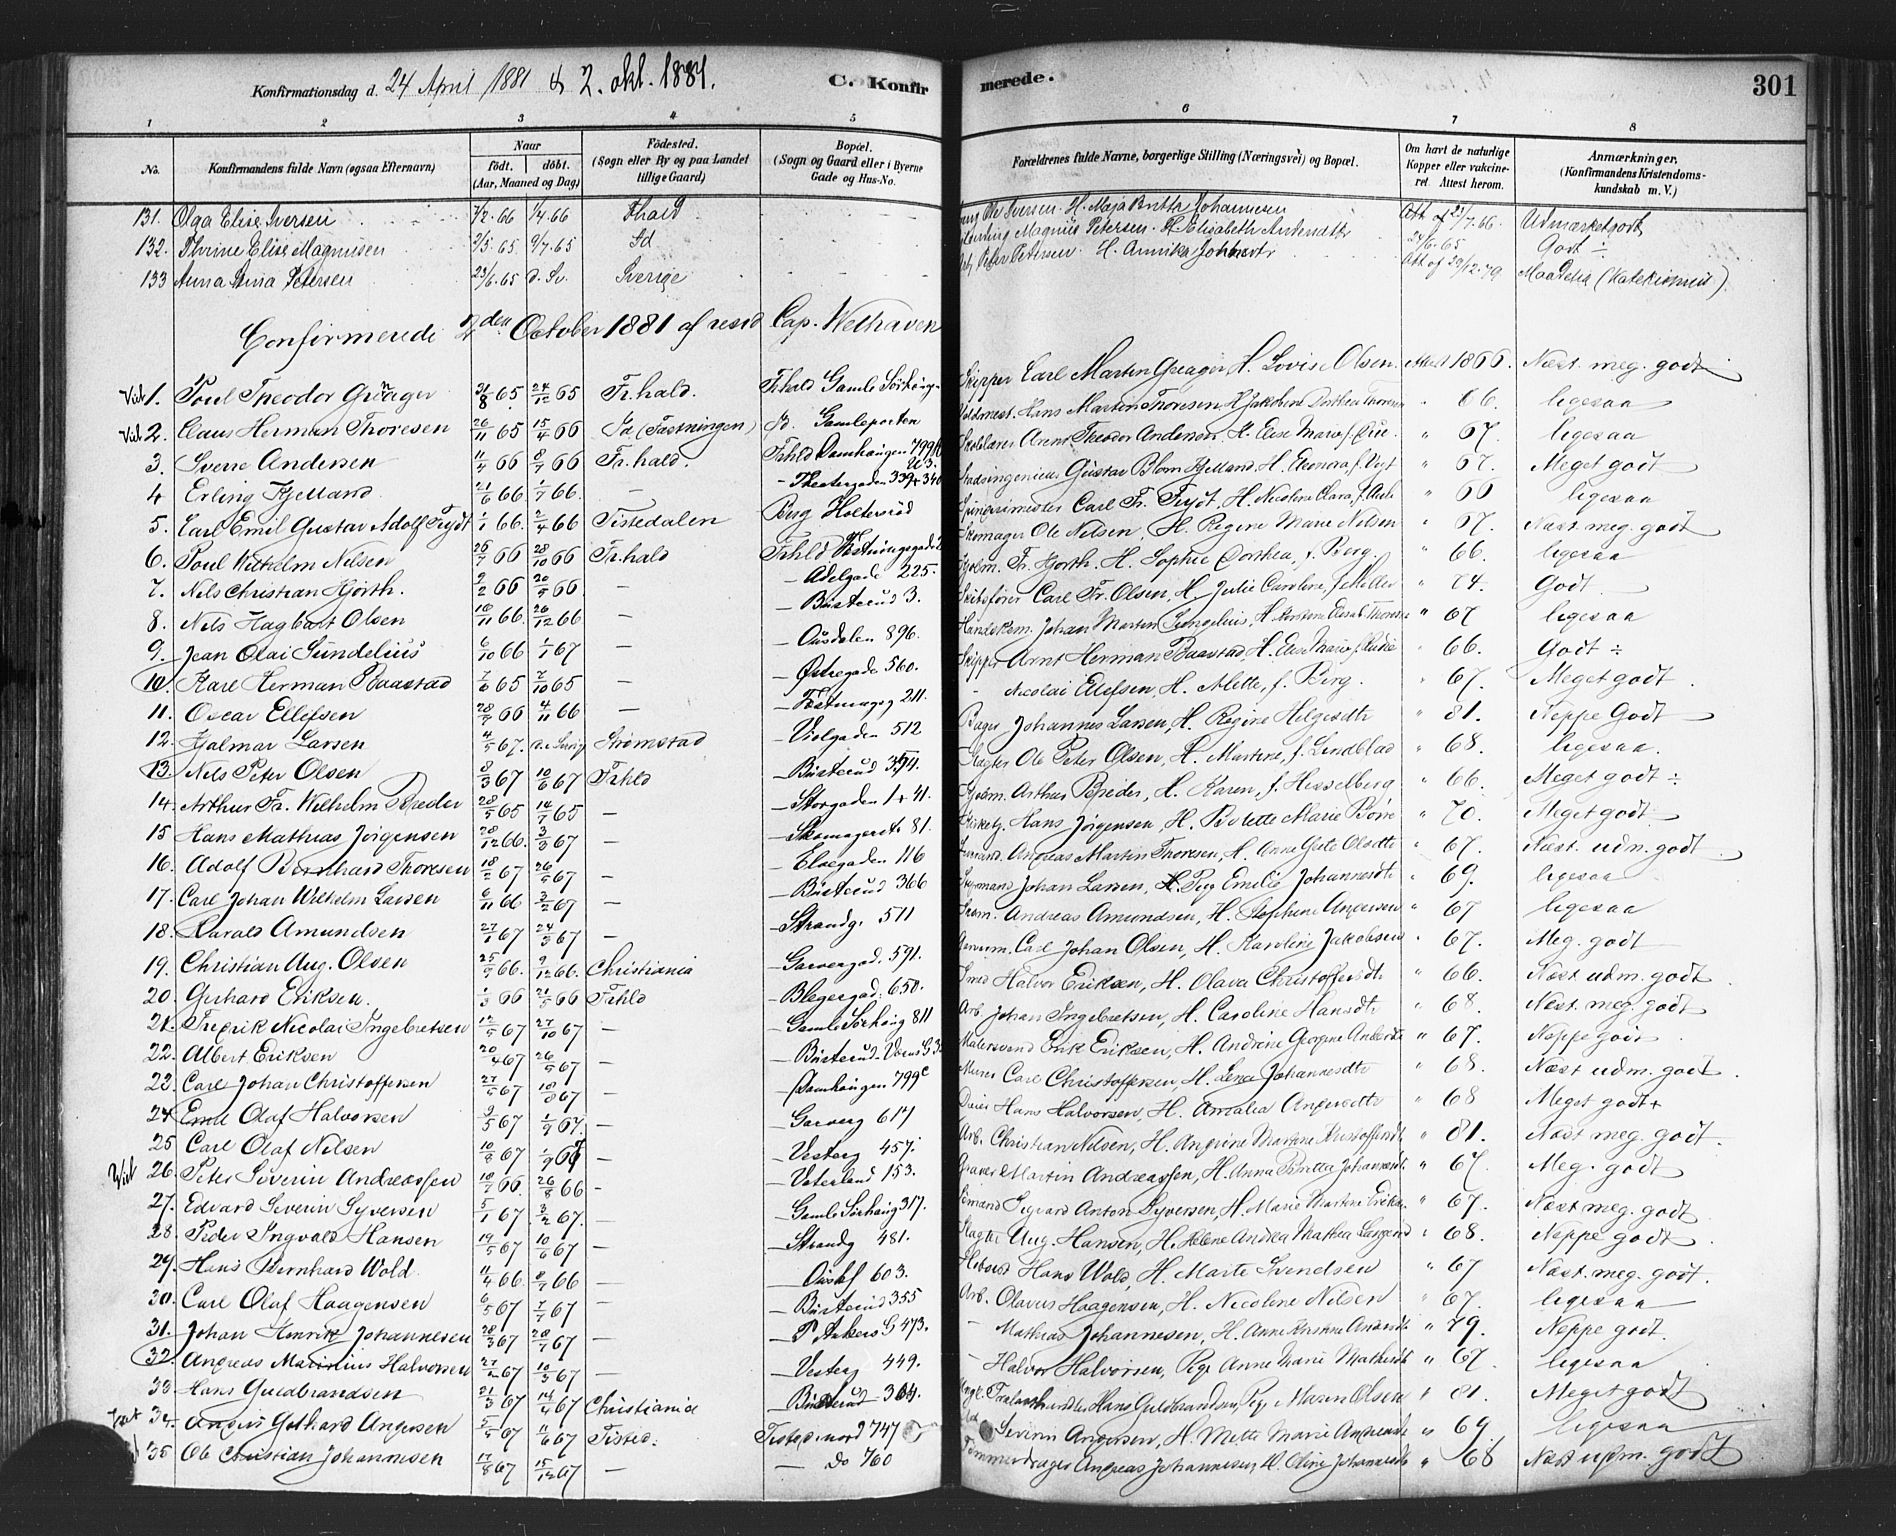 Konfirmationsdag d. 24 April 1881 & 2. okt. 1881. C. Konfirmerede. 301
1 2 3 4 5 6 7 8
No. Konfirmandens fulde Navn (ogsaa Efternavn) Naar født. døbt. (Aar, Maaned og Dag) Fødested. (Sogn eller By og paa Landet tillige Gaard) Bopæl. (Sogn og Gaard eller i Byerne Gade og Hus-No. Forældrenes fulde Navne, borgerlige Stilling (Næringsvei) og Bopæl. Om havt de naturlige Kopper eller vakcineret. Attest herom. Anmærkninger. (Konfirmandens Kristendomskundskab m. V.)
131. Olga Elise Iversen 7/2.66 1/4.66 Fhald Ole Iversen. H. Maja Britta Johannesen Udmærket godt
132. Thrine Elise Magnusen 2/5.65 9/7.65 Id Magnus Petersen. H. Elisabeth 24/6.65 Godt ÷
133 Anna Stina Petersen 23/6.65 d. Sv. Sverige Peter Petersen. H. Annika Att af 29/12.79 Maadelig (Katekismus)
Confirmerede 2den October 1881 af resid. Cap. Welhaven
1. Poul Theodor Grønager 21/8 65 24/12 65 Fr.hald. Frhald Gamle Sørhaug Skipper Carl Martin H. Lovise Olsen Attest 1866 Næst. meg. godt
2. Claus Herman Thoresen 26/11 65 15/4 66 Id (Fæstningen) Id. Gamleporten Hans Martin Thoresen, H. Jakobine Dorthea Thoresen " 66. ligesaa
3. Sverre Andersen 11/4 66 8/7 66 Fr.hald. Frhld Damhaugen 799 Arent Theodor Andersen, H. Elise Marie " 67. ligesaa
4 Erling Kjelland 21/6 66 1/7 66. — - Theatergaden 339+340 Stadsingeniør Gustav Blom Kjelland, H. Eleonora f. Vogt " 67. Meget godt
5. Carl Emil Gustav Adolf Frydt 1/1 66. 2/4 66 Tistedalen Berg Holtersrød Spinderimester Carl Fr. Frydt, H. Nicoline Clara, " 66 ligesaa
6. Poul Wilhelm Nilsen 26/7 66 28/10 66 Fr.hald Frhld Skomager Ole Nilsen, H. Regine Marie Nilsen " 67. Næst. meg. godt
7. Nils Christian Hjorth. 9/2 66 20/5 66. — — Adelgade 225. Kjøbm. Fr. Hjorth. H. Sophie Dorthea, f. Berg. " 66. ligesaa
8. Nils Hagbart Olsen 10/11 66 26/12 66 — — Busterud 3. Skibsfører Carl Fr. Olsen, H. Julie Caroline, f. Møller " 74. Godt
9. Jean Olai Sundelius 6/10 66 1/1 67 — — Ousdalen 896. Handskem. Johan Martin H. " 67 ligesaa
10. Karl Herman Baastad 7/6 65 7/10 65 — — Østregade 560. Skipper Arnt Herman Baastad, H. Else Marie " 66. Godt ÷
11. Oscar Ellefsen 28/7 66 4/11 66 — — 211. - Nicolai Ellefsen, H. Mette, f. Berg. " 67. Meget godt
12. Hjalmar Larsen 4/5 67. Strømstad — Violgaden 512 Bager Johannes Larsen, H. Regine Helgesdtr " 81. Neppe Godt
13. Nils Peter Olsen 8/3 67 10/6 67 Frhld — Busterud 394. Slagter Ole Peter Olsen, H. Martine, f. Lindblad " 68. ligesaa.
14. Arthur Fr. Wilhelm Breder 28/5 65 14/7 65 — — Storgaden 1+41. Kjøbm. Arthur Breder, H. Karen, f. Hesselberg " 66. Meget godt ÷
15 Hans Mathias Jørgensen 28/12 66. 3/3 67 — — Skomagerst 81. Hans Jørgensen, H. Bolette Marie Børre " 70. Meget godt
16. Adolf Bernhard Thoresen 18/2 67 26/5 67 — — Elvegaden 116 Andreas Martin Thoresen, H. Anne Grete Olsdtr " 67. Næst. udm. godt
17. Carl Johan Wilhelm Larsen 6/11 66 3/2 67 — — Busterud 366 Johan Larsen, H. Emilie Johannesdtr " 69. ligesaa
18. Harald Amundsen 27/1 67 24/3 67 — — Strandg. 511 Andreas Amundsen, H. Josephine Andersen " 67 ligesaa
19. Christian Aug. Olsen 25/9 66. 9/12 66. Christiania — Garvergad. 591. Carl Johan Olsen, H. Karoline Jakobsen " 67. Meg. godt
20. Gerhard Eriksen. 1/3 66 21/5 66 Frhld — Blegergad. 650. Smed Halvor Eriksen, H. Olava Christoffersdtr " 66. Næst udm. godt
21. Fredrik Nicolai Ingebretsen 12/5 67 27/10 67 — — Gamle Sørhaug 811 Arb. Johan Ingebretsen, H. Caroline Hansdtr " 68. Næst. meg. godt
22. Albert Eriksen 20/4 67 26/5 67 — — Busterud Malersvend Erik Eriksen, H. Andrine Georgine " 67. Neppe godt
23. Carl Johan Christoffersen 27/5 67 18/8 67 — — Damhaugen 799c Murer Carl Christoffersen, H. Lena Johannesdtr " 68. Næst udm. godt
24 Emil Olaf Halvorsen 9/5 67 1/9 67. — — Garverg 617 Hans Halvorsen, H. Amalia Andersdtr " 68 Meget godt +
25 Carl Olaf Nilsen 10/8 67 — — Vesterg 457. Arb. Christian Nilsen, H. Andrine Martine Kristoffersdtr " 81. Næst meg. godt.
26. Peter Severin Andreassen 10/7 66. 26/8 66 — — Vaterland 153. Martin Andreassen, H. Anna Britta Johannesdt " 67. Meg. godt
27. Edvard Severin Syversen 5/1 67. 3/2 67. — — Gamle Sørhaug 317. Sigvard Anton Syversen, H. Marie Martine " 67. Næst meg. godt
28. Peder Ingvald Hansen 19/5 67 10/6 67 — — Strandg 481. Slagter Aug. Hansen, H. Helene Andrea Mathea " 68. Neppe godt
29. Hans Bernhard Wold. 11/4 66. 8/7 66 — — 603. Hans Wold, H. Marte Svendsen " 67 Næst. meg. godt.
30. Carl Olaf Haagensen 6/5 67 7/7 67 — — Busterud 355 Arb. Olavus Haagensen, H. Nicoline Nilsen " 67. ligesaa
31. Johan Henrik Johannesen 28/3 67 28/7 67 — — P Ankers G 473. — Mathias Johannesen, H. Anne " 79. Neppe godt.
32. Andreas Marinius Halvorsen 27/2 67 10/3 67 — — Vesterg 449. — Halvor Halvorsen, Pige Anne Marie " 67. ligesaa
33. Hans Guldbrandsen 21/3 67 14/4 67 Christiania — Busterud 304. Hans Guldbrandsen, Pige Maren Olsen " 81. Meget godt
34. Anders Gothard Andersen 5/5 67 11/6 67 Tisted. Tisted. nord 747 Severin Andersen, H. Mette Marie " 69. ligesaa
35 Ole Christian Johannesen 17/8 67 15/12 67 — — do 760 Tømmerdrager Andreas Johannesen, H. Oline " 68 Næst udm. godt